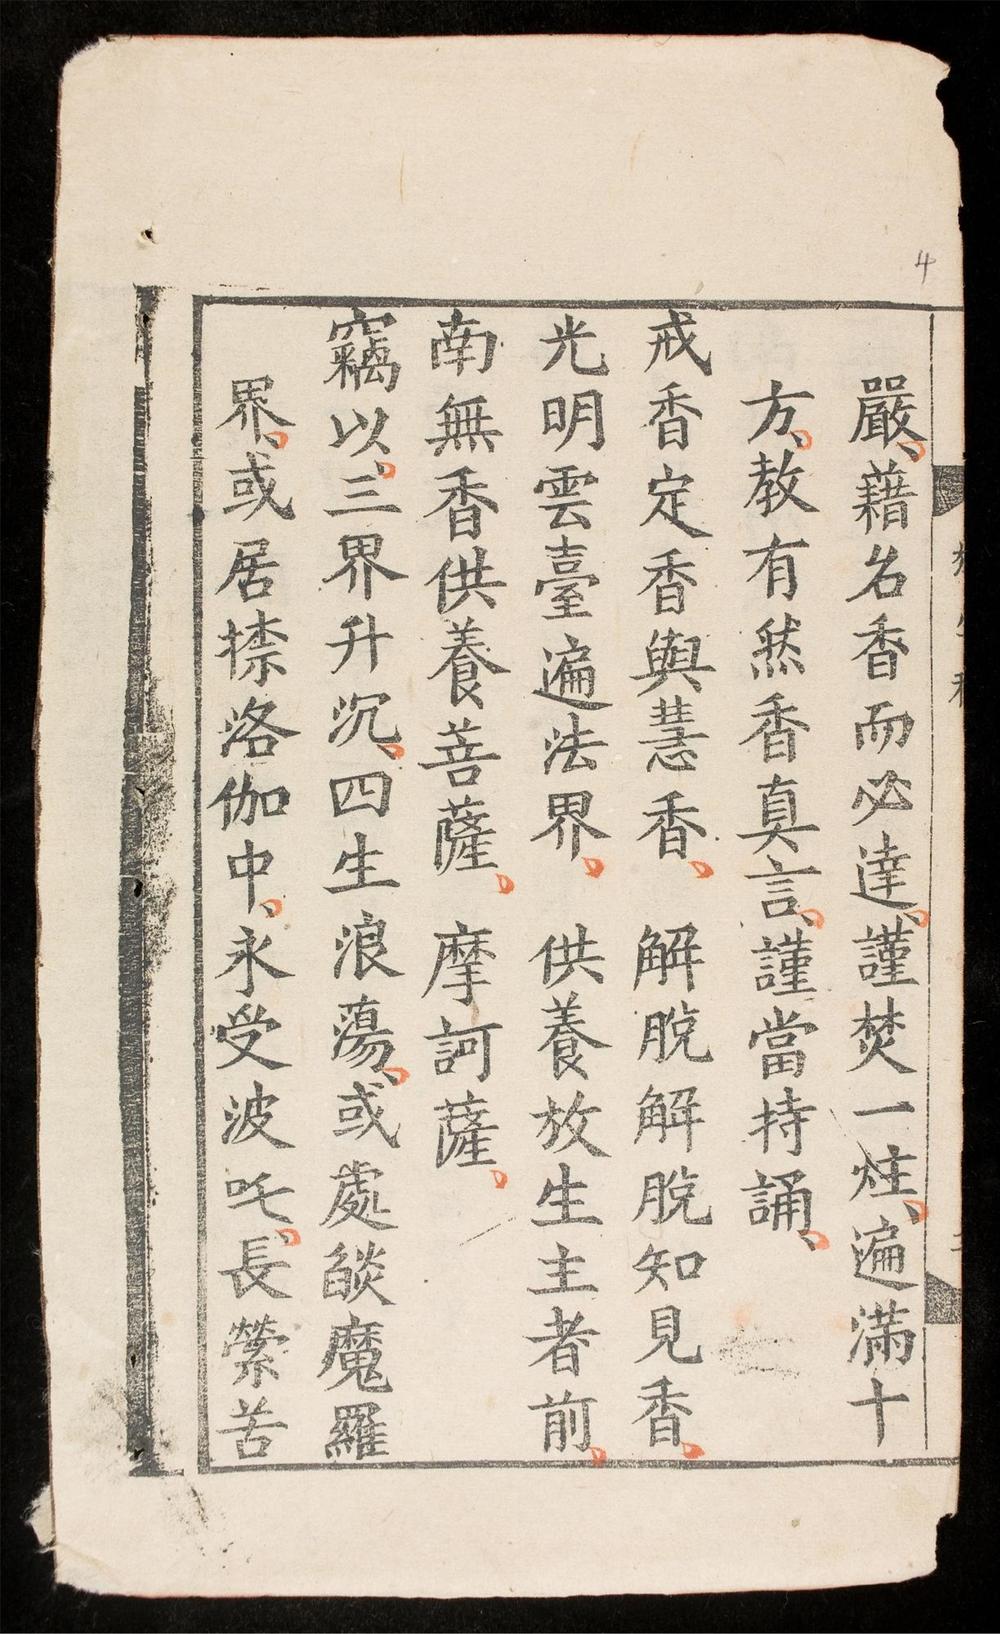 4
嚴、藉名香而必達、謹焚一炷、遍滿十
方、教有然香真言、謹當持誦、
戒香定香與慧香、 解脫解脫知見香、
光明雲臺遍法界、 供養放生主者前、
南無香供養菩薩、 摩訶薩、
竊以、三界升沉、四生浪蕩、或處燄魔羅
界、或居捺洛伽中、永受波吒、長縈苦